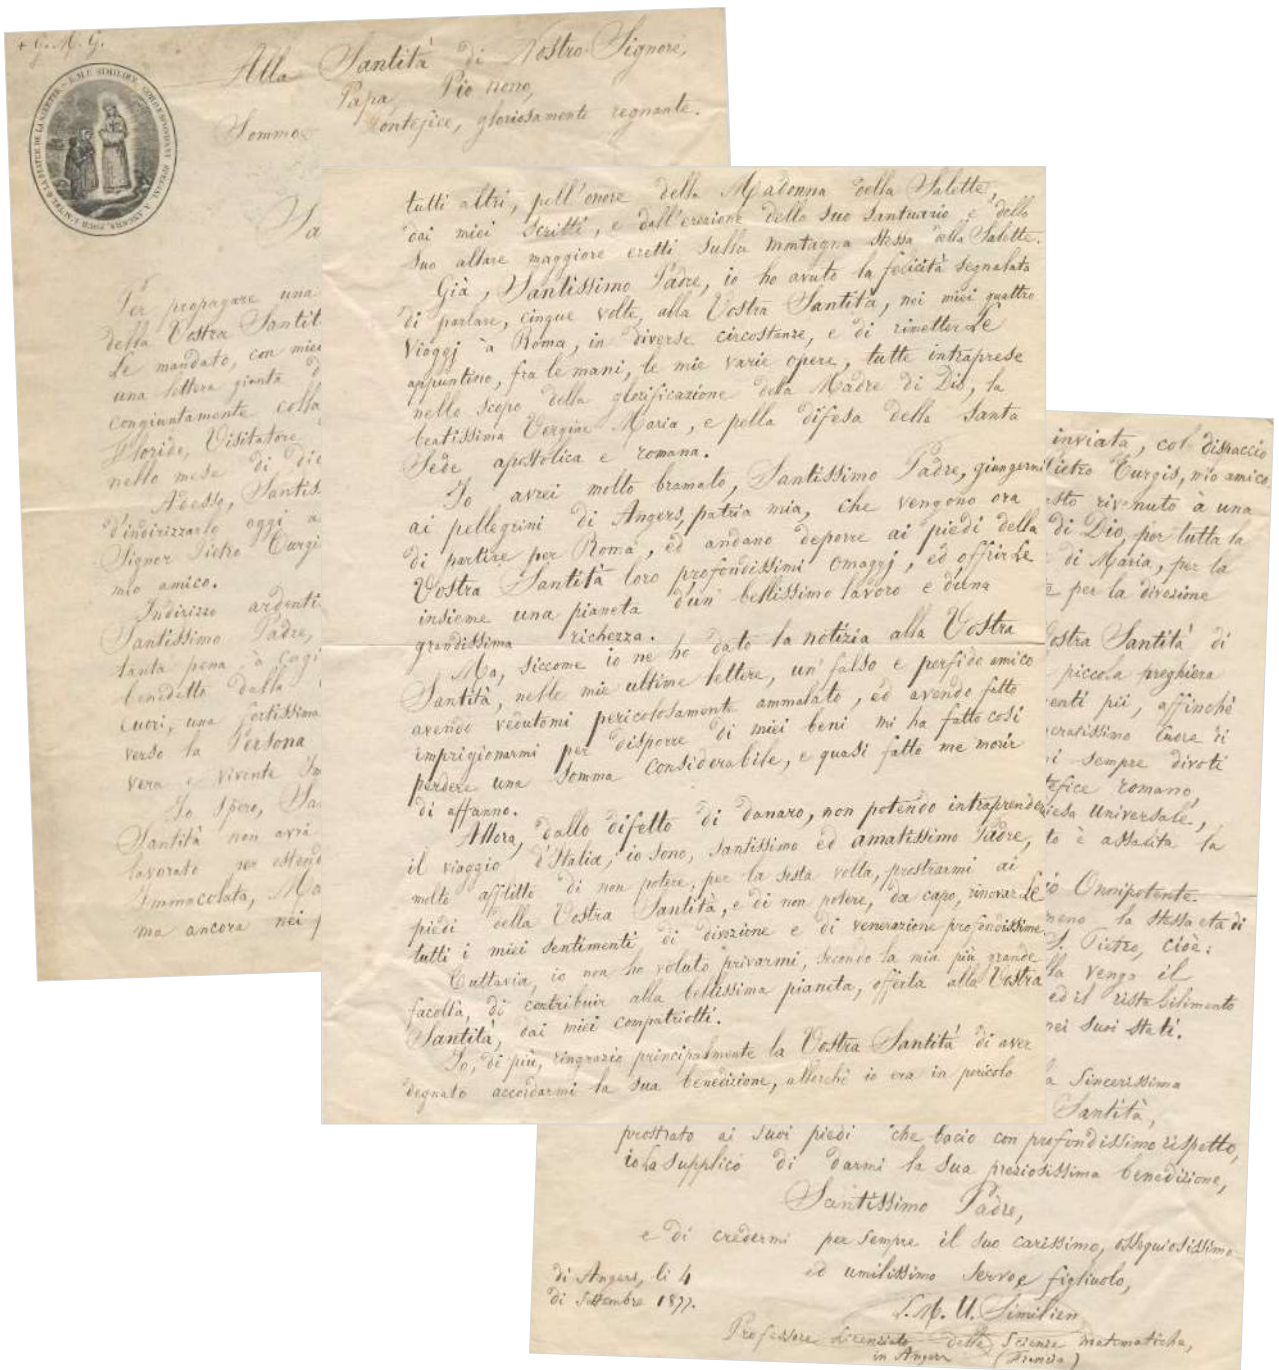 + G. M. G.
Alla Santità di Nostro Signore,
Papa, Pio nono,
Sommo Pontefice, gloriosamente regnante.
Sa
Per propagare una
della Vostra Santit
Le mandato, con miei
una lettera giunta
congiuntamente colla
Florido, Visitatore
nello mese di die
Adesso, Santiss
d'indirizzarlo oggi a
Signor Pietro Turgi
mio amico.
Indirizzo ardenti
Santissimo Padre,
tanta pena à cagi
benedetto dalla
cuori, una fortissima
verso la Persona
vera e vivente Im
Io spero, Sa
Santità non avrà
lavorato per estend
Immacolata, Ma
ma ancora nei p
tutti altri, pell'onore della Madonna della Salette,
dai miei scritti, e dall'erezione dello suo santuario e dello
suo altare maggiore eretti sulla montagna stessa della Salette.
Già, Santissimo Padre, io ho avuto la felicità segnalata
di parlare, cinque volte, alla Vostra Santità, nei miei quattro
viaggj à Roma, in diverse circostanze, e di rimetterLe
appuntino, fra le mani, le mie varie opere, tutte intraprese
nello scopo della glorificazione della Madre di Dio, la
beatissima Vergine Maria, e pella difesa della Santa
Sede apostolica e romana.
Io avrei molto bramato, Santissimo Padre, giungermi
ai pellegrini di Angers, patria mia, che vengono ora
di partire per Roma, ed andano deporre ai piedi della
Vostra Santità loro profondissimi omaggj, ed offrirLe
insieme una pianeta d'un bellissimo lavoro e d'una
grandissima richezza.
Ma, siccome io ne ho dato la notizia alla Vostra
Santità, nelle mie ultime lettere, un falso e perfido amico
avendo vedutomi pericolosamente ammalato, ed avendo fatto
imprigionarmi per disporre di miei beni mi ha fatto così
perdere una somma considerabile, e quasi fatto me morir
di affanno.
Allora, dallo difetto di danaro, non potendo intraprender
il viaggio d'Italia, io sono, santissimo ed amatissimo Padre,
molto afflitto di non potere, per la sesta volta, prostrarmi ai
piedi della Vostra Santità, e di non potere, da capo, rinovarLe
tutti i miei sentimenti di divozione e di venerazione profondissime.
Tuttavia, io non ho voluto privarmi, secondo la mia più grande
facoltà, di contribuir alla bellissima pianeta, offerta alla Vostra
Santità, dai miei compatriotti.
Io, di più, ringrazio principalmente la Vostra Santità di aver
degnato accordarmi la sua benedizione, allorchè io era in pericolo
inviata, col dispaccio
Pietro Turgis, mio amico.
rivenuto à una
di Dio, per tutta la
di Maria, per la
e per la divozione
Vostra Santità di
piccola preghiera
enti più, affinchè
Cuore di
i sempre divoti
efice romano,
iesa Universale,
to è assalita la
io Onnipotente.
meno la stessa età di
S. Pietro, cioè:
lla vengo il
ed il ristabilimento
nei suoi stati.
a sincerissima
Santità,
prostrato ai suoi piedi che bacio con profondissimo rispetto,
io La supplico di darmi la sua preziosissima benedizione,
Santissimo Padre,
e di credermi per sempre il suo carissimo, ossequiosissimo
ed umilissimo servo e figliuolo,
di Angers, li 4
di Settembre 1877.
L. M. U. Similien
Professore Licenziato della Scienze matematiche,
in Angers (Francia)